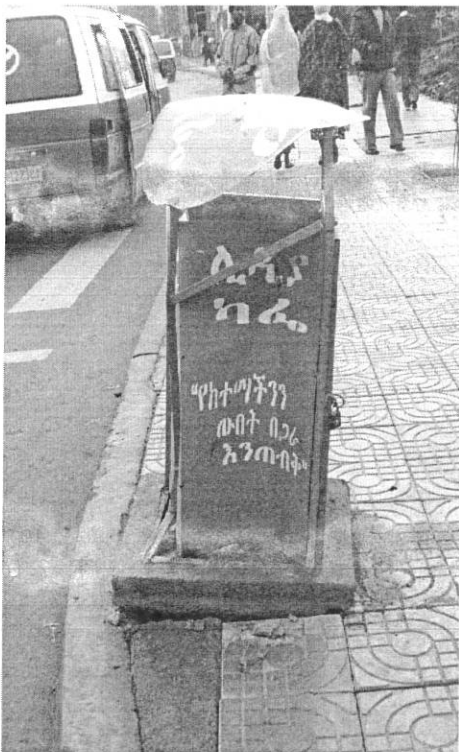 ሊዲያ
ካፌ
"የከተማችንን
ውበት በጋራ
እንጠብቅ"